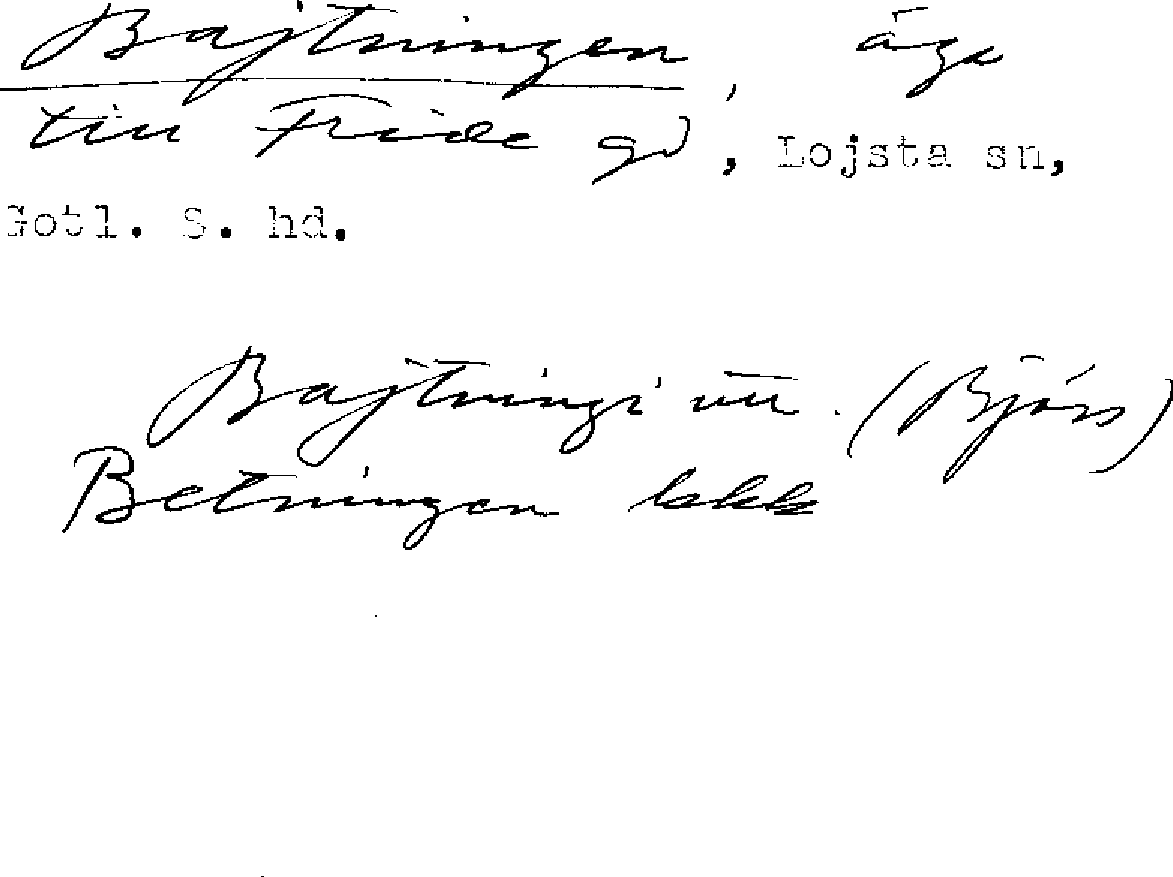 Bajtningen, äga
till Fride gd, Lojsta sn,
Gotl. S. hd.
Bajtningi utt. (Björs)
Betningen